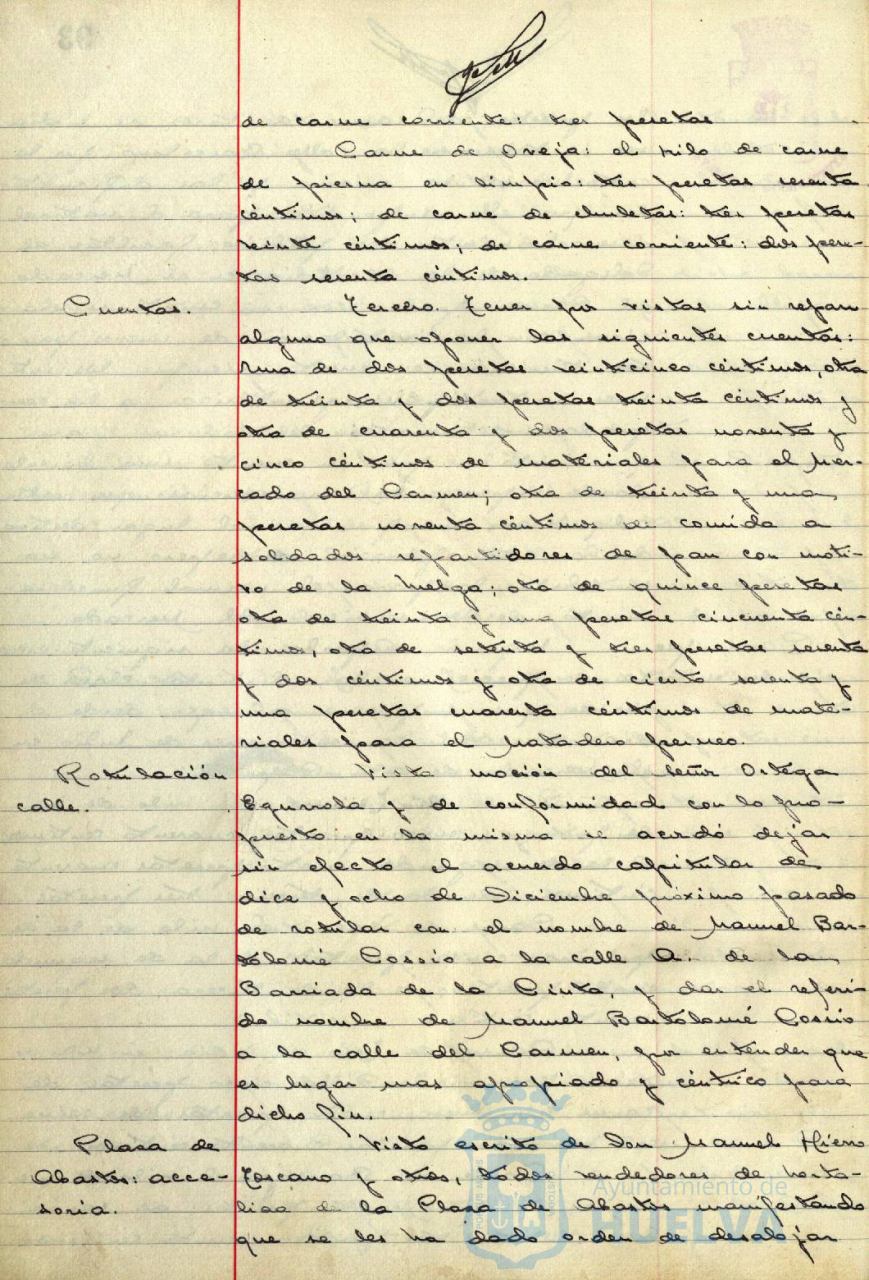 de carne corriente: tres pesetas
Carne de Oveja: el kilo de carne
de pierna en limpio: tres pesetas sesenta
céntimos; de carne de chuletas: tres pesetas
veinte céntimos; de carne corriente: dos pese-
tas sesenta céntimos.
Cuentas.
Tercero. Tener por vistas sin reparo
alguno que oponer las siguientes cuentas:
Una de dos pesetas veinticinco céntimos, otra
de treinta y dos pesetas treinta céntimos y
otra de cuarenta y dos pesetas noventa y
cinco céntimos de materiales para el Mer-
cado del Carmen; otra de treinta y una
pesetas noventa céntimos de comida a
soldados repartidores de pan con moti-
vo de la huelga; otra de quince pesetas
otra de treinta y una pesetas cincuenta cén-
timos, otra de setenta y tres pesetas sesenta
y dos céntimos y otra de ciento sesenta y
una pesetas cuarenta céntimos de mate-
riales para el Matadero perneo.
Rotulación
calle.
Vista moción del señor Ortega
Egurrola y de conformidad con lo pro-
puesto en la misma se acordó dejar
sin efecto el acuerdo capitular de
diez y ocho de Diciembre próximo pasado
de rotular con el nombre de Manuel Bar-
tolomé Cossio a la calle A. de la
Barriada de la Cinta, y dar el referi-
do nombre de Manuel Bartolomé Cossio
a la calle del Carmen, por entender que
es lugar mas apropiado y céntrico para
dicho fin.
Plaza de
Abastos: acce-
soria.
Visto escrito de Don Manuel Hierro
Toscano y otros, todos vendedores de horta-
liza de la Plaza de Abastos manifestando
que se les ha dado orden de desalojar
Ayuntamiento de
HUELVA